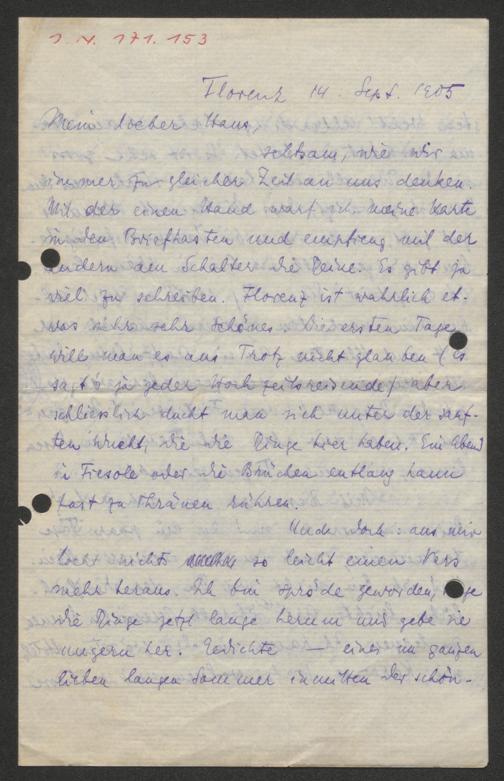 I. N. 171.153
Florenz 14. Sept. 1905
Mein lieber Hans,
seltsam, wie wir
immer zu gleicher Zeit an uns denken.
Mit der einen Hand warf ich meine Karte
in den Briefkasten und empfieng mit der
andern am Schalter die Deine. Es gibt ja
viel zu schreiben. Florenz ist wahrlich et-
was sehr sehr Schönes. Die ersten Tage
will man es aus Trotz nicht glauben (es
sagt's ja jeder Hochzeitsreisende) aber
schliesslich duckt man sich unter der sanf-
ten Wucht, die die Dinge hier haben. Ein Abend
in Fiesole oder die Brücken entlang kann
fast zu Thränen rühren.
Und doch: aus mir
lockt nichts so leicht einen Vers
mehr heraus. Ich bin spröde geworden, trage
die Dinge jetzt lange herum und gebe sie
ungern her. Gedichte — eines im ganzen
lieben langen Sommer inmitten der schön-